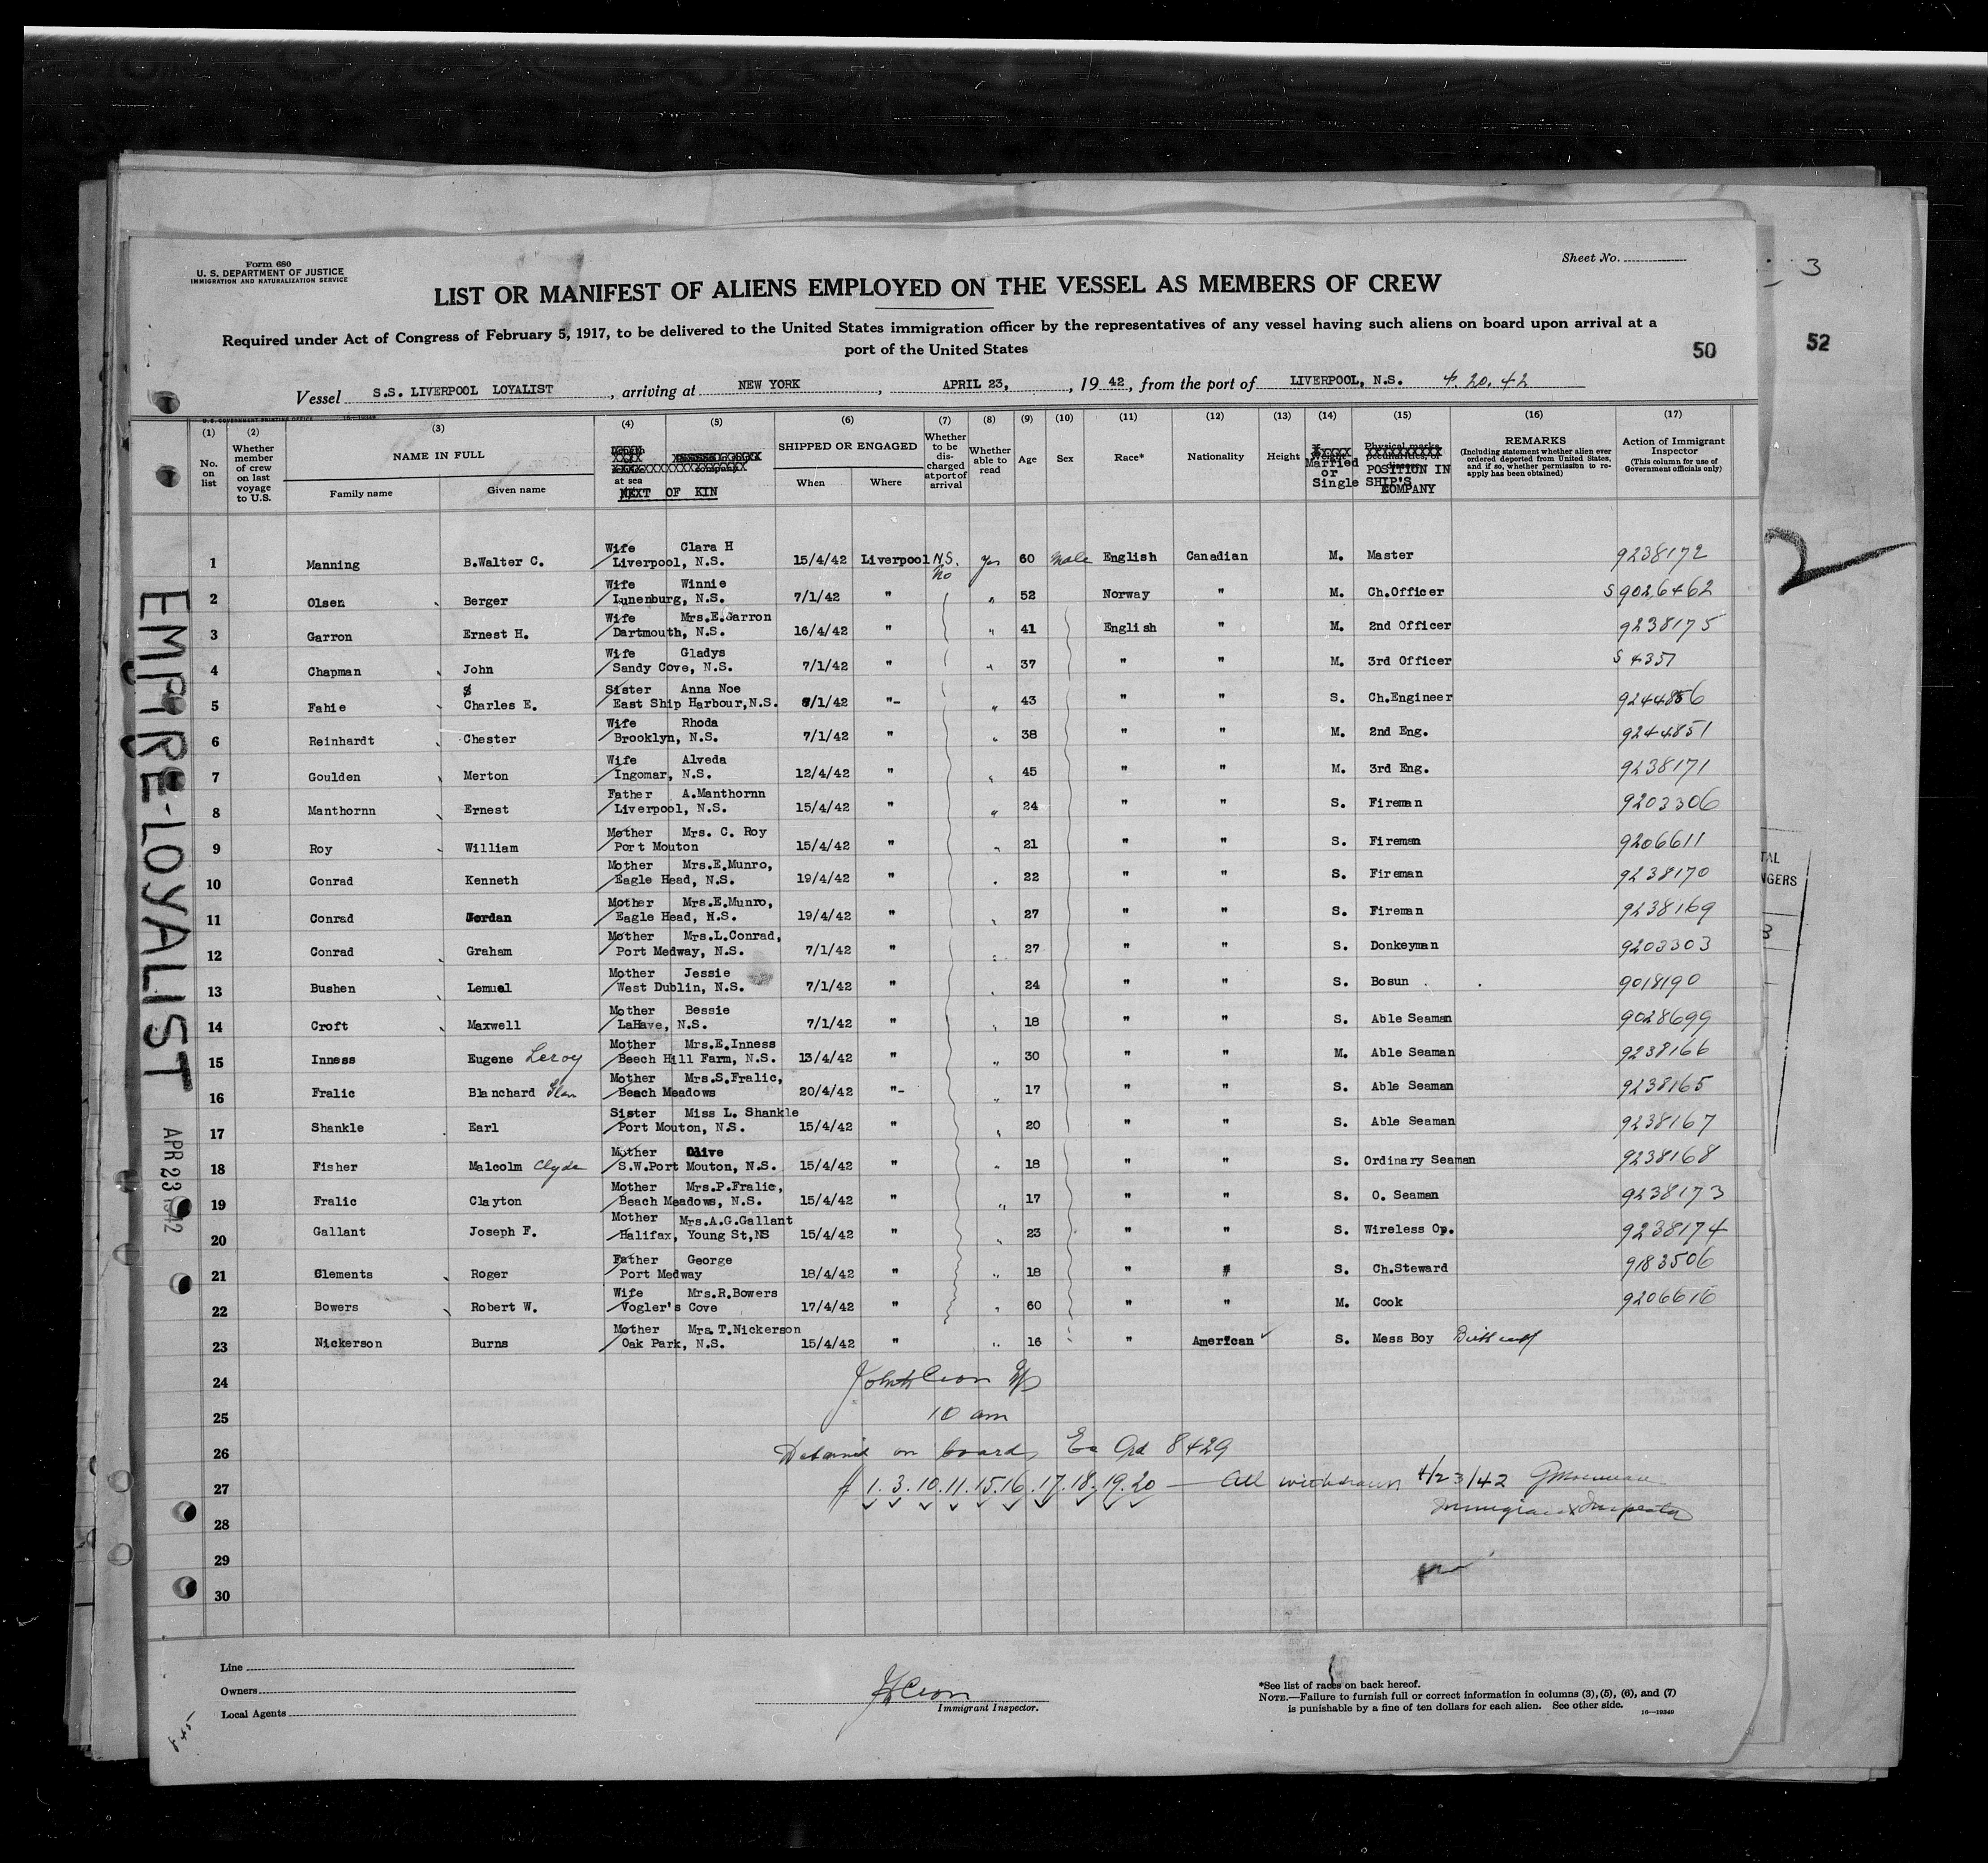 Form 680
U. S. DEPARTMENT OF JUSTICE
IMMIGRATION AND NATURALIZATION SERVICE
Sheet No.
3
LIST OR MANIFEST OF ALIENS EMPLOYED ON THE VESSEL AS MEMBERS OF CREW
Required under Act of Congress of February 5, 1917, to be delivered to the United States immigration officer by the representatives of any vessel having such aliens on board upon arrival at a
port of the United States
50
52
Vessel S.S. LIVERPOOL LOYALIST, arriving at NEW YORK, APRIL 23, 1942, from the port of LIVERPOOL, N.S. 4.20.42
U. S. GOVERNMENT PRINTING OFFICE 16—19349
(1) No. on list
(2) Whether member of crew on last voyage to U.S.
(3) NAME IN FULL Family name Given name
(4) (5) at sea NEXT OF KIN
(6) SHIPPED OR ENGAGED When Where
(7) Whether to be discharged at port of arrival
(8) Whether able to read
(9) Age
(10) Sex
(11) Race*
(12) Nationality
(13) Height
(14) Married or Single
(15) Physical marks, peculiarities, or disease POSITION IN SHIP'S COMPANY
(16) REMARKS (Including statement whether alien ever ordered deported from United States, and if so, whether permission to reapply has been obtained)
(17) Action of Immigrant Inspector (This column for use of Government officials only)
1 Manning B.Walter C. Wife Clara H Liverpool, N.S. 15/4/42 Liverpool N.S. No Yes 60 Male English Canadian M. Master 9238172
2 Olsen Berger Wife Winnie Lunenburg, N.S. 7/1/42 " " 52 Norway " M. Ch.Officer S 9026462
3 Garron Ernest H. Wife Mrs.E.Garron Dartmouth, N.S. 16/4/42 " " 41 English " M. 2nd Officer 9238175
4 Chapman John Wife Gladys Sandy Cove, N.S. 7/1/42 " " 37 " " M. 3rd Officer S 4351
5 Fahie Charles E. Sister Anna Noe East Ship Harbour,N.S. /1/42 "- " 43 " " S. Ch.Engineer 9244856
6 Reinhardt Chester Wife Rhoda Brooklyn, N.S. 7/1/42 " " 38 " " M. 2nd Eng. 9244851
7 Goulden Merton Wife Alveda Ingomar, N.S. 12/4/42 " " 45 " " M. 3rd Eng. 9238171
8 Manthornn Ernest Father A.Manthornn Liverpool, N.S. 15/4/42 " " 24 " " S. Fireman 9203306
9 Roy William Mother Mrs. C. Roy Port Mouton 15/4/42 " " 21 " " S. Fireman 9206611
10 Conrad Kenneth Mother Mrs.E.Munro, Eagle Head, N.S. 19/4/42 " " 22 " " S. Fireman 9238170
11 Conrad Jordan Mother Mrs.E.Munro, Eagle Head, N.S. 19/4/42 " " 27 " " S. Fireman 9238169
12 Conrad Graham Mother Mrs.L.Conrad, Port Medway, N.S. 7/1/42 " " 27 " " S. Donkeyman 9203303
13 Bushen Lemuel Mother Jessie West Dublin, N.S. 7/1/42 " " 24 " " S. Bosun 9018190
14 Croft Maxwell Mother Bessie LaHave, N.S. 7/1/42 " " 18 " " S. Able Seaman 9028699
15 Inness Eugene Leroy Mother Mrs.E.Inness Beech Hill Farm, N.S. 13/4/42 " " 30 " " M. Able Seaman 9238166
16 Fralic Blanchard Mother Mrs.S.Fralic, Beach Meadows 20/4/42 "- " 17 " " S. Able Seaman 9238165
17 Shankle Earl Sister Miss L. Shankle Port Mouton, N.S. 15/4/42 " " 20 " " S. Able Seaman 9238167
18 Fisher Malcolm Clyde Mother Olive S.W.Port Mouton, N.S. 15/4/42 " " 18 " " S. Ordinary Seaman 9238168
19 Fralic Clayton Mother Mrs.P.Fralic, Beach Meadows, N.S. 15/4/42 " " 17 " " S. O. Seaman 9238173
20 Gallant Joseph F. Mother Mrs.A.G.Gallant Halifax, Young St,NS 15/4/42 " " 23 " " S. Wireless Op. 9238174
21 Clements Roger Father George Port Medway 18/4/42 " " 18 " " S. Ch.Steward 9183506
22 Bowers Robert W. Wife Mrs.R.Bowers Vogler's Cove 17/4/42 " " 60 " " M. Cook 9206616
23 Nickerson Burns Mother Mrs.T.Nickerson Oak Park, N.S. 15/4/42 " " 16 " American S. Mess Boy
24
25 10 am
26 Detained on board Ex Od 8429
27 # 1. 3. 10. 11. 15. 16. 17. 18. 19. 20 — All withdrawn 4/23/42
Immigrant Inspector
28
29
30
EMPIRE-LOYALIST
APR 23 1942
2
TAL
NGERS
3
Line
Owners
Local Agents
Immigrant Inspector.
*See list of races on back hereof.
NOTE.—Failure to furnish full or correct information in columns (3), (5), (6), and (7)
is punishable by a fine of ten dollars for each alien. See other side.
16—19349